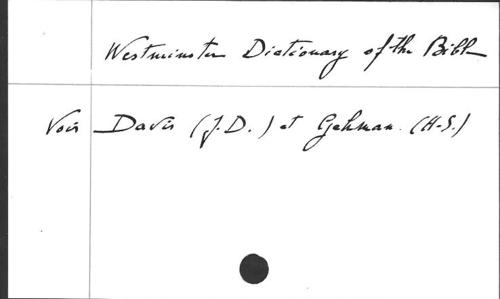 Westminster Dictionary of the Bible
Voir Davis (J.D.) et Gehman. (H-S.)